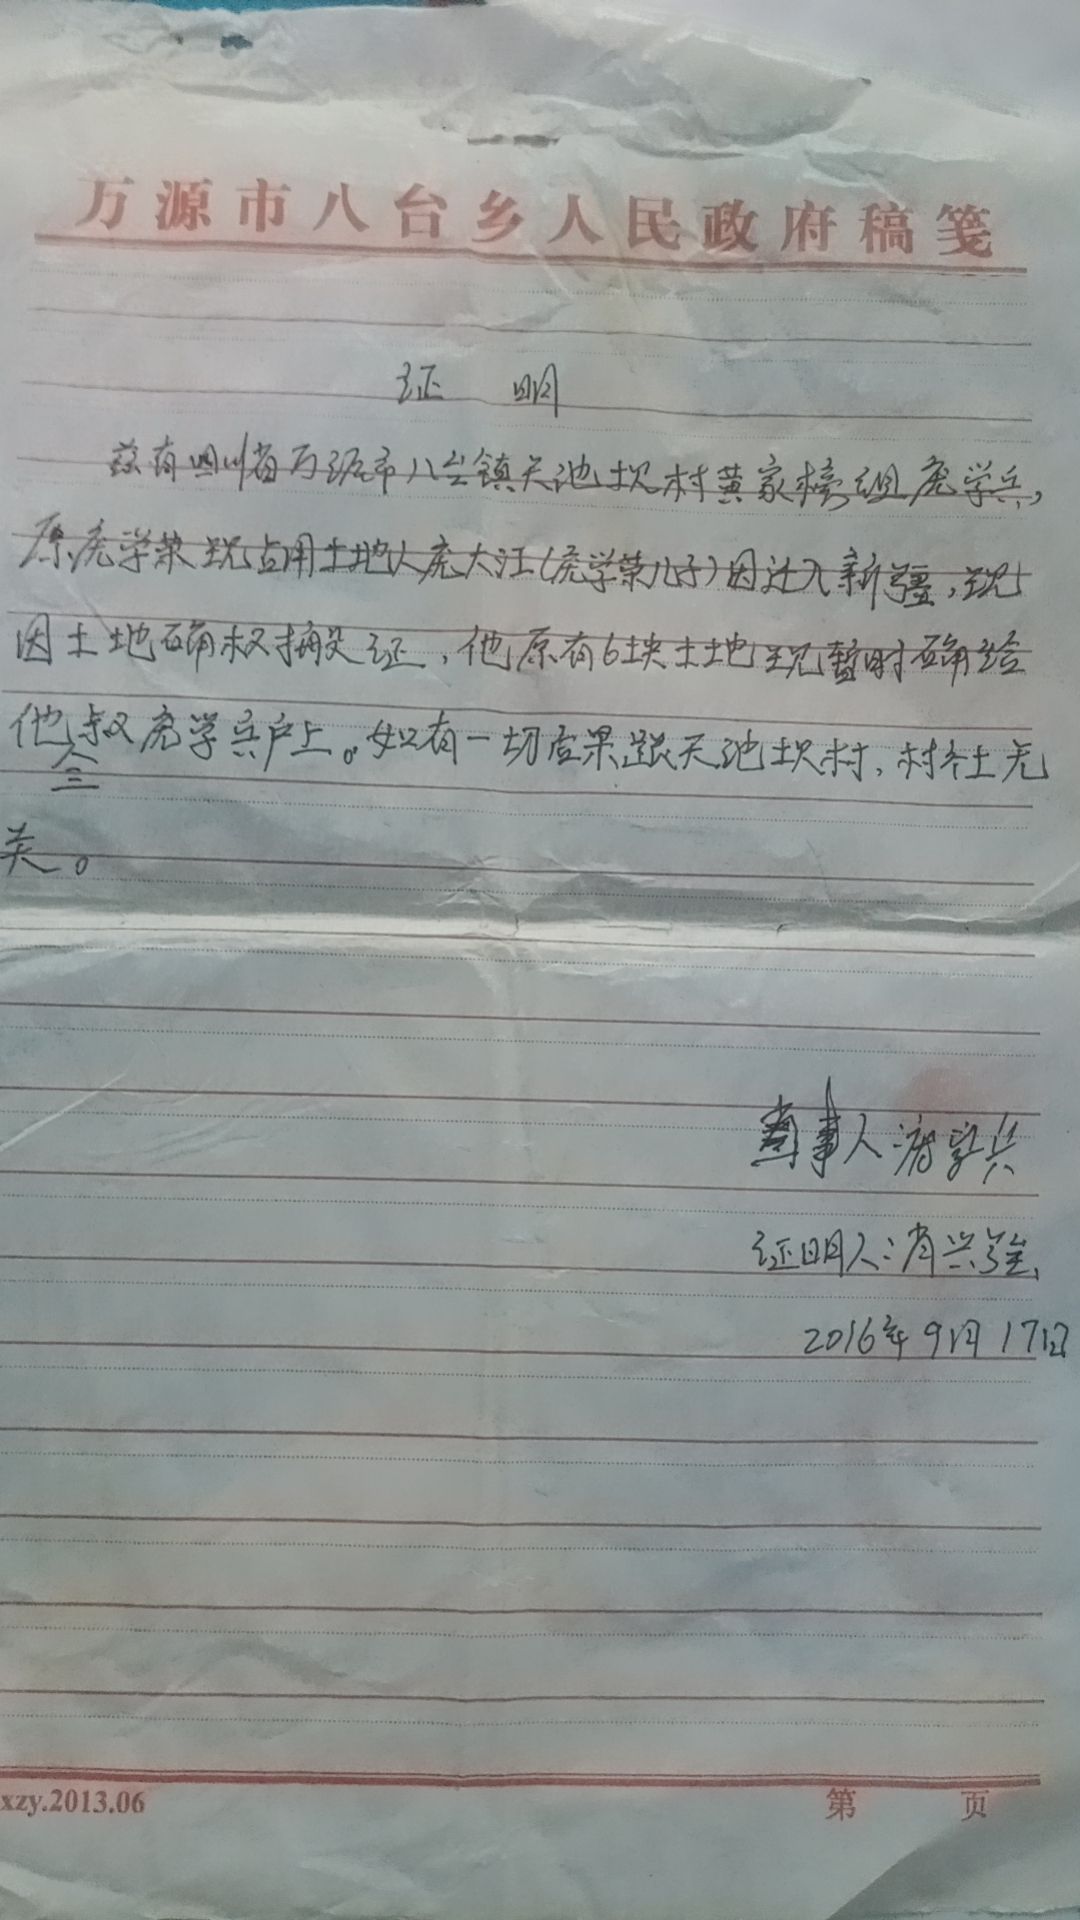 万源市八台乡人民政府稿笺
证 明
兹有四川省万源市八台镇天池坝村黄家榜组庞学兵,
原庞学荣现占用土地人庞大江(庞学荣儿子)因迁入新疆,现
因土地确权换证,他原有6块土地现暂时确给
他三叔庞学兵户上。如有一切后果跟天池坝村、村社无
关。
当事人:庞学兵
证明人:肖兴
2016年9月17日
xzy.2013.06 第 页